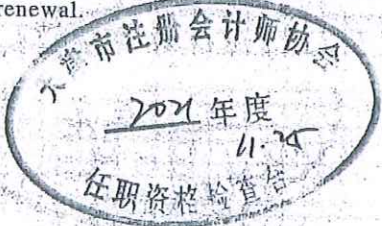 renewal.
天津市注册会计师协会
2021 年度
11.25
任职资格检查